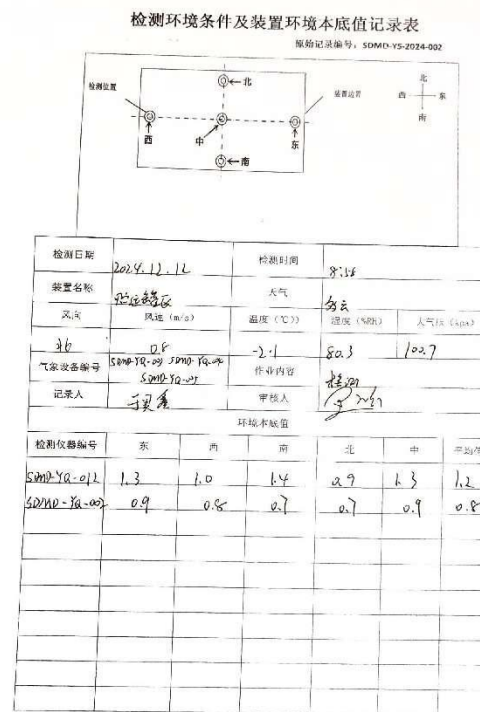 检测环境条件及装置环境本底值记录表
原始记录编号：SDMD-YS-2024-002
北
北
检测位置
装置边界
西 东
西 中 东
南
南
检测日期 2024.12.12 检测时间 8:58
装置名称 天气 多云
风向 风速（m/s） 温度（℃） 湿度（%RH） 大气压（kpa）
北 0.8 -2.1 80.3 100.7
气象设备编号 SDMD-YQ-003 SDMD-YQ-004 作业内容 检测
SDMD-YQ-005
记录人 审核人
环境本底值
检测仪器编号 东 西 南 北 中 平均值
SDMD-YQ-012 1.3 1.0 1.4 0.9 1.3 1.2
SDMD-YQ-007 0.9 0.8 0.7 0.7 0.9 0.8